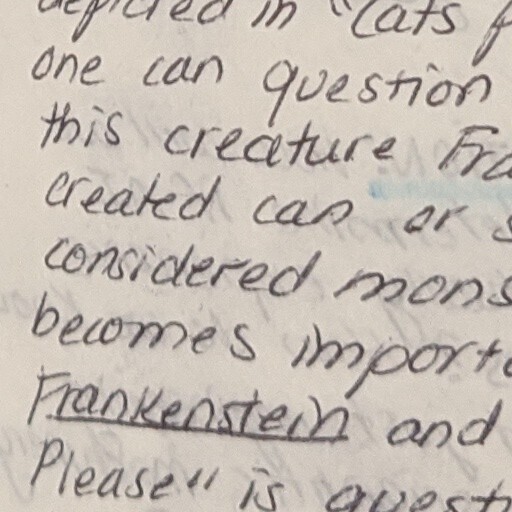 depicted in "Cats
one can question
this creature Fra
created can or s
considered mons
becomes importa
Frankenstein and
Please" is quest